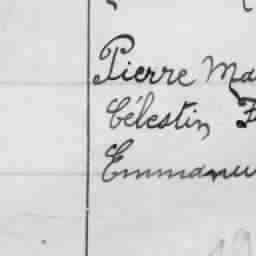 Pierre Ma
Célestin F
Emmanu